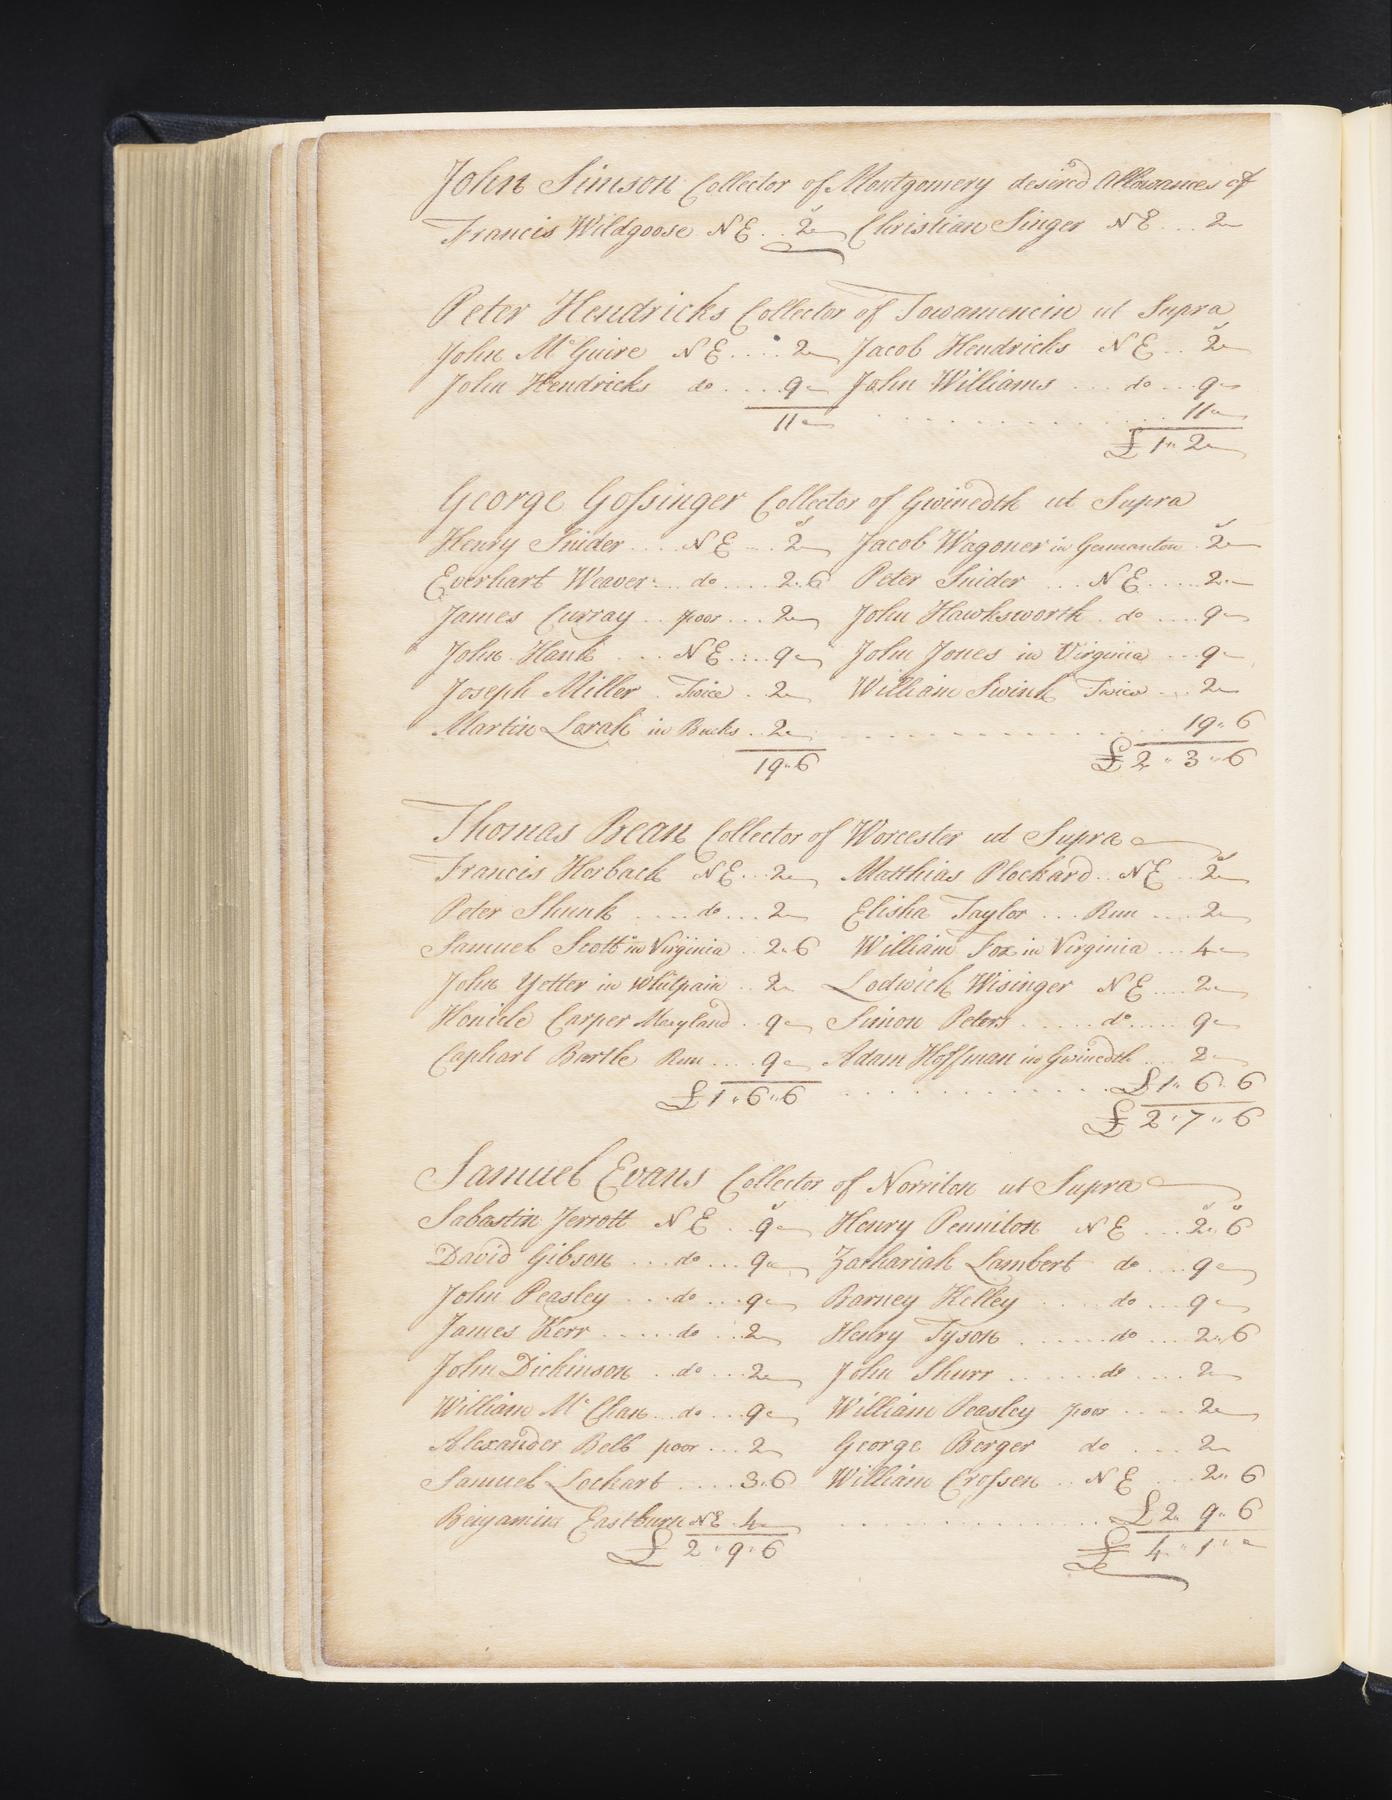 John Simson Collector of Montgomery desired Allowances of
Francis Wildgoose NE .. 2 Christian Singer NE ... 2
Peter Hendricks Collector of Towamencin ut Supra
John McGuire NE .... 2 Jacob Hendricks NE .. 2
John Hendricks do .... 9 John Williams ... do ... 9
11 . . . . . . . . 11
£ 1 " 2
George Gossinger Collector of Gwinedth ut Supra
Henry Snider .... NE ... 2 Jacob Wagoner in Germanton . 2
Everhart Weaver ... do .... 2.6 Peter Snider ... NE ..... 2
James Curray .. poor ... 2 John Hawksworth . do .... 9
John Hank ... NE .... 9 John Jones in Virginia ... 9
Joseph Miller . Twice . 2 William Swink Twice ... 2
Martin Lorah in Bucks .. 2 . . . . . . . . 19 " 6
19 " 6 £ 2 " 3 " 6
Thomas Bean Collector of Worcester ut Supra
Francis Horback NE ... 2 Matthias Plockard .. NE .. 2
Peter Shunk ..... do ... 2 Elisha Taylor ... Run .... 2
Samuel Scott in Virginia .. 2 " 6 William Fox in Virginia ... 4
John Yetter in Whitpain .. 2 Lodwick Wisinger NE .... 2
Honicle Carper Maryland .. 9 Simon Peters ...... do ..... 9
Caphart Bartle Run .... 9 Adam Hoffman in Gwinedth ... 2
£ 1 " 6 " 6 . . . . . . . . £ 1 " 6 " 6
£ 2 " 7 " 6
Samuel Evans Collector of Norriton ut Supra
Sabastin Jerrott NE .. 9 Henry Penniton NE ... 2 " 6
David Gibson ... do ... 9 Zachariah Lambert do .... 9
John Peasley ... do ... 9 Barney Kelley .... do ... 9
James Kerr ...... do .. 2 Henry Tyson ....... do .... 2 " 6
John Dickinson .. do ... 2 John Shurr ....... do .... 2
William Mc Chan .. do ... 9 William Peasley poor ..... 2
Alexander Bell poor ... 2 George Berger do .... 2
Samuel Lockart ..... 3 " 6 William Crossen .. NE ... 2 " 6
Benjamin Eastburn NE . 4 . . . . . . . . £ 2 " 9 " 6
£ 2 " 9 " 6 £ 4 " 1 "